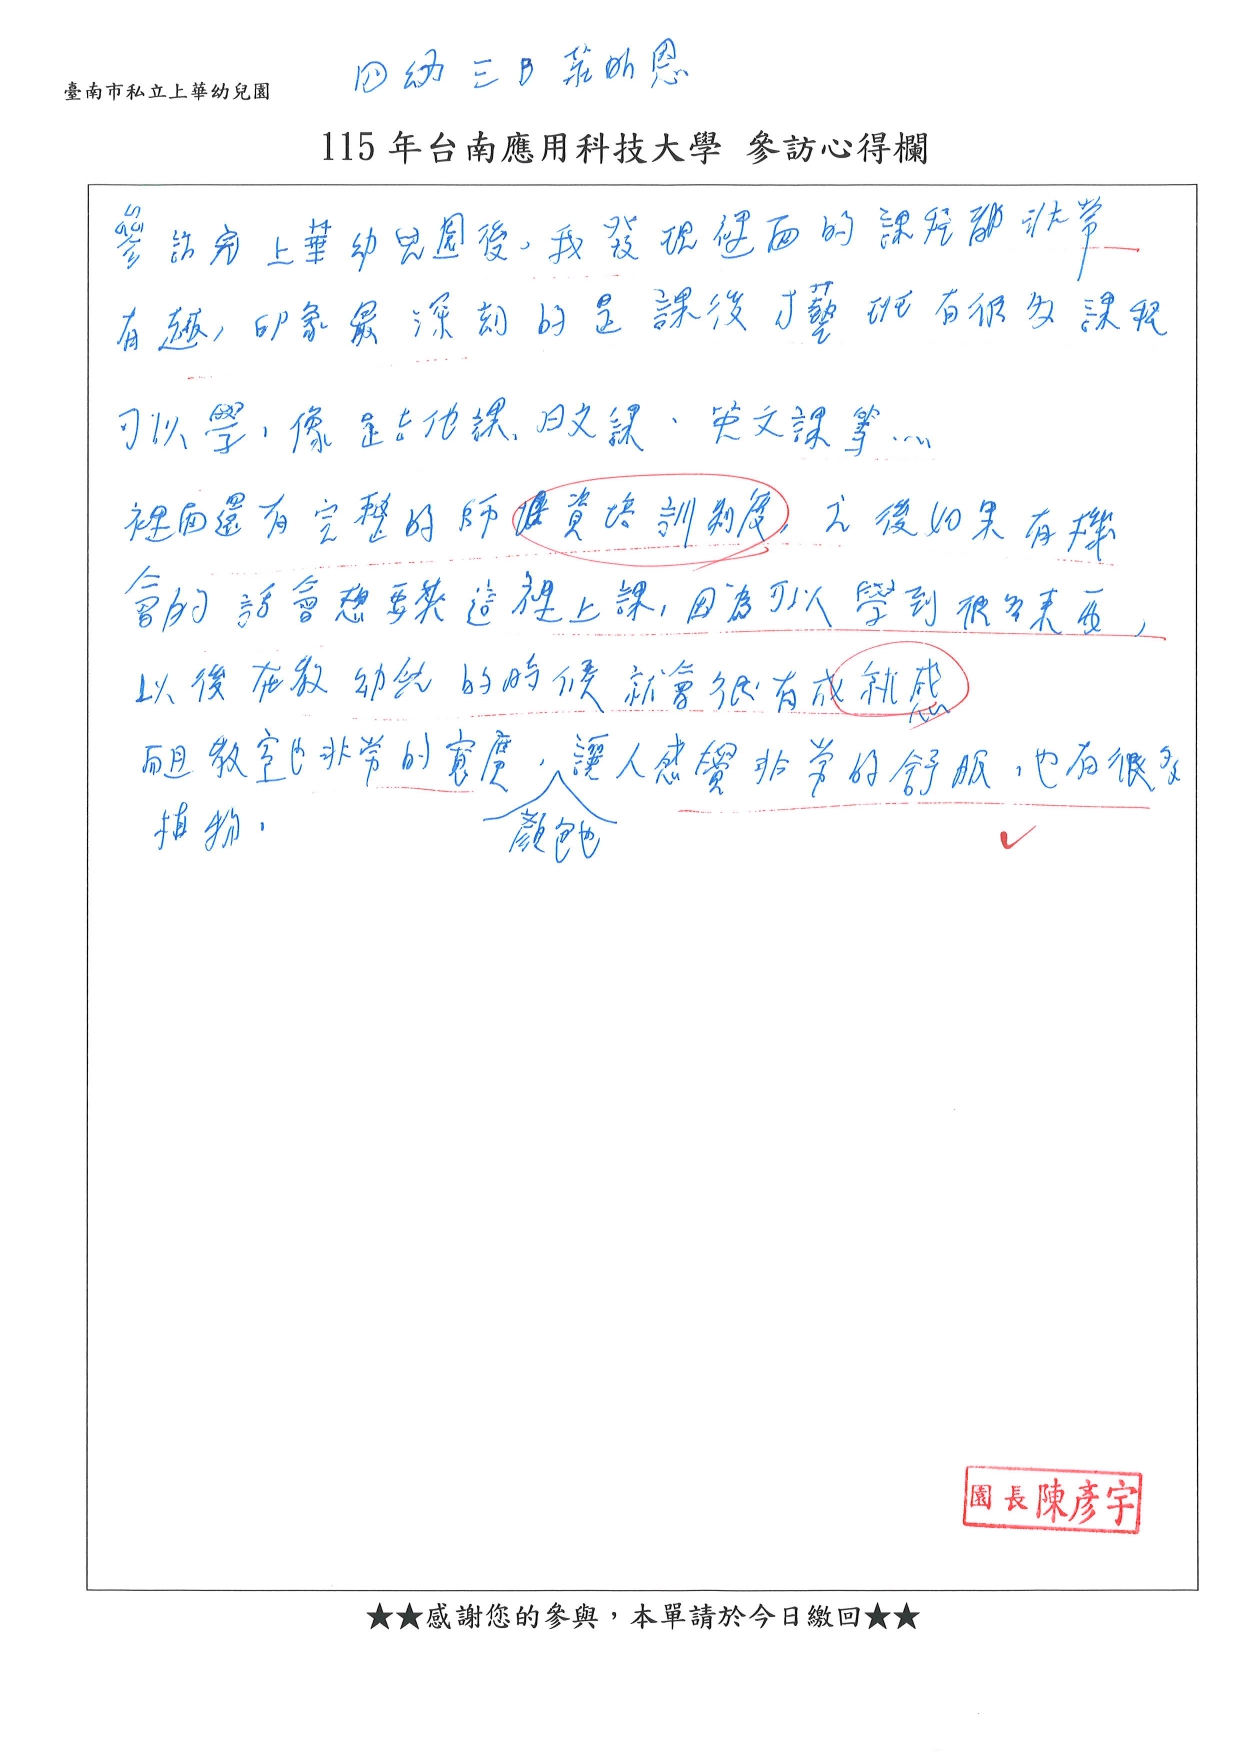 四幼三B 莊昕恩
臺南市私立上華幼兒園
115 年台南應用科技大學 參訪心得欄
參訪完上華幼兒園後，我發現裡面的課程都非常
有趣，印象最深刻的是課後才藝班有很多課程
可以學，像是吉他課、日文課、英文課等…
裡面還有完整的師資培訓制度，之後如果有機
會的話會想要來這裡上課，因為可以學到很多東西，
以後在教幼兒的時候就會很有成就感
而且教室也非常的寬廣，讓人感覺非常的舒服，也有很多
顏色也
植物，
園長陳彥宇
★★感謝您的參與，本單請於今日繳回★★